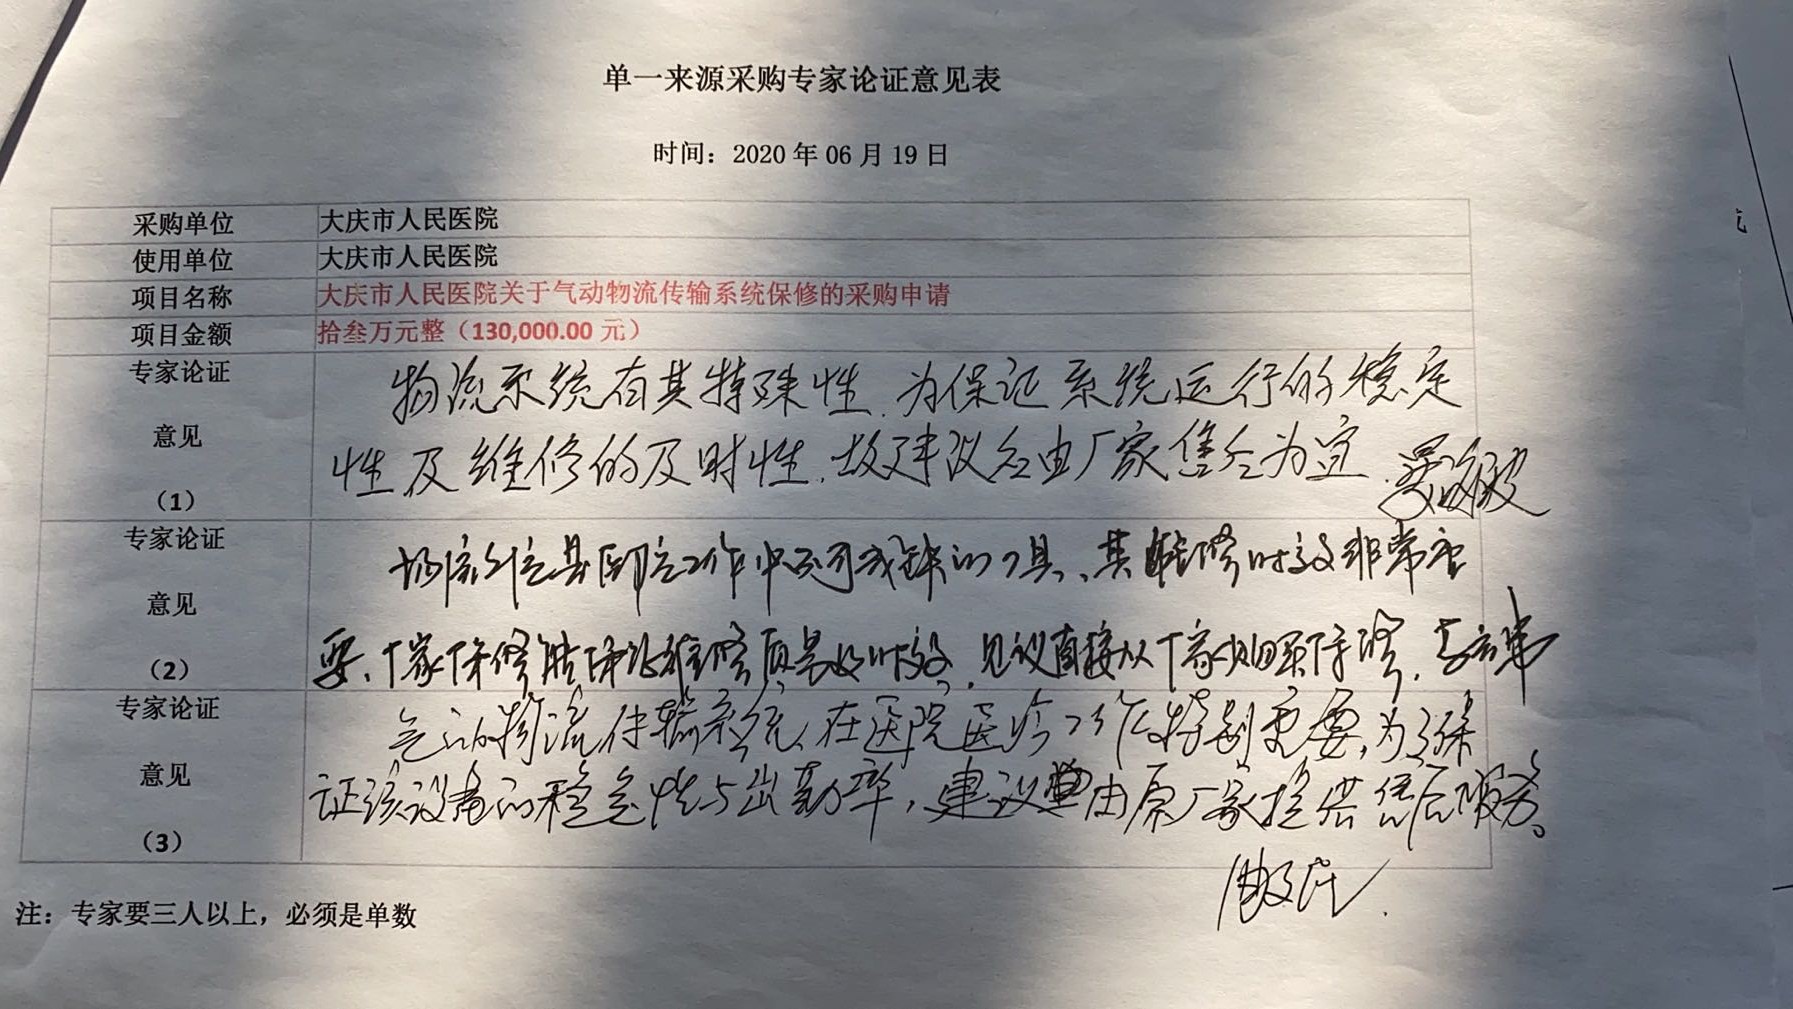 单一来源采购专家论证意见表
时间：2020 年 06 月 19 日
采购单位 大庆市人民医院
使用单位 大庆市人民医院
项目名称 大庆市人民医院关于气动物流传输系统保修的采购申请
项目金额 拾叁万元整（130,000.00 元）
专家论证
意见
（1）
物流系统有其特殊性，为保证系统运行的稳定
性及维修的及时性，故建议 由厂家售后为宜
专家论证
意见
（2）
工作中不可或缺的工具、其维修时效非常重
要，厂家保修能保证维修质量及时效，建议直接从厂家购买保修，
专家论证
意见
（3）
气动物流传输系统，在医院医疗工作特别重要，为了保
证该设备的稳定性与出勤率，建议由原厂家提供售后服务。
注：专家要三人以上，必须是单数